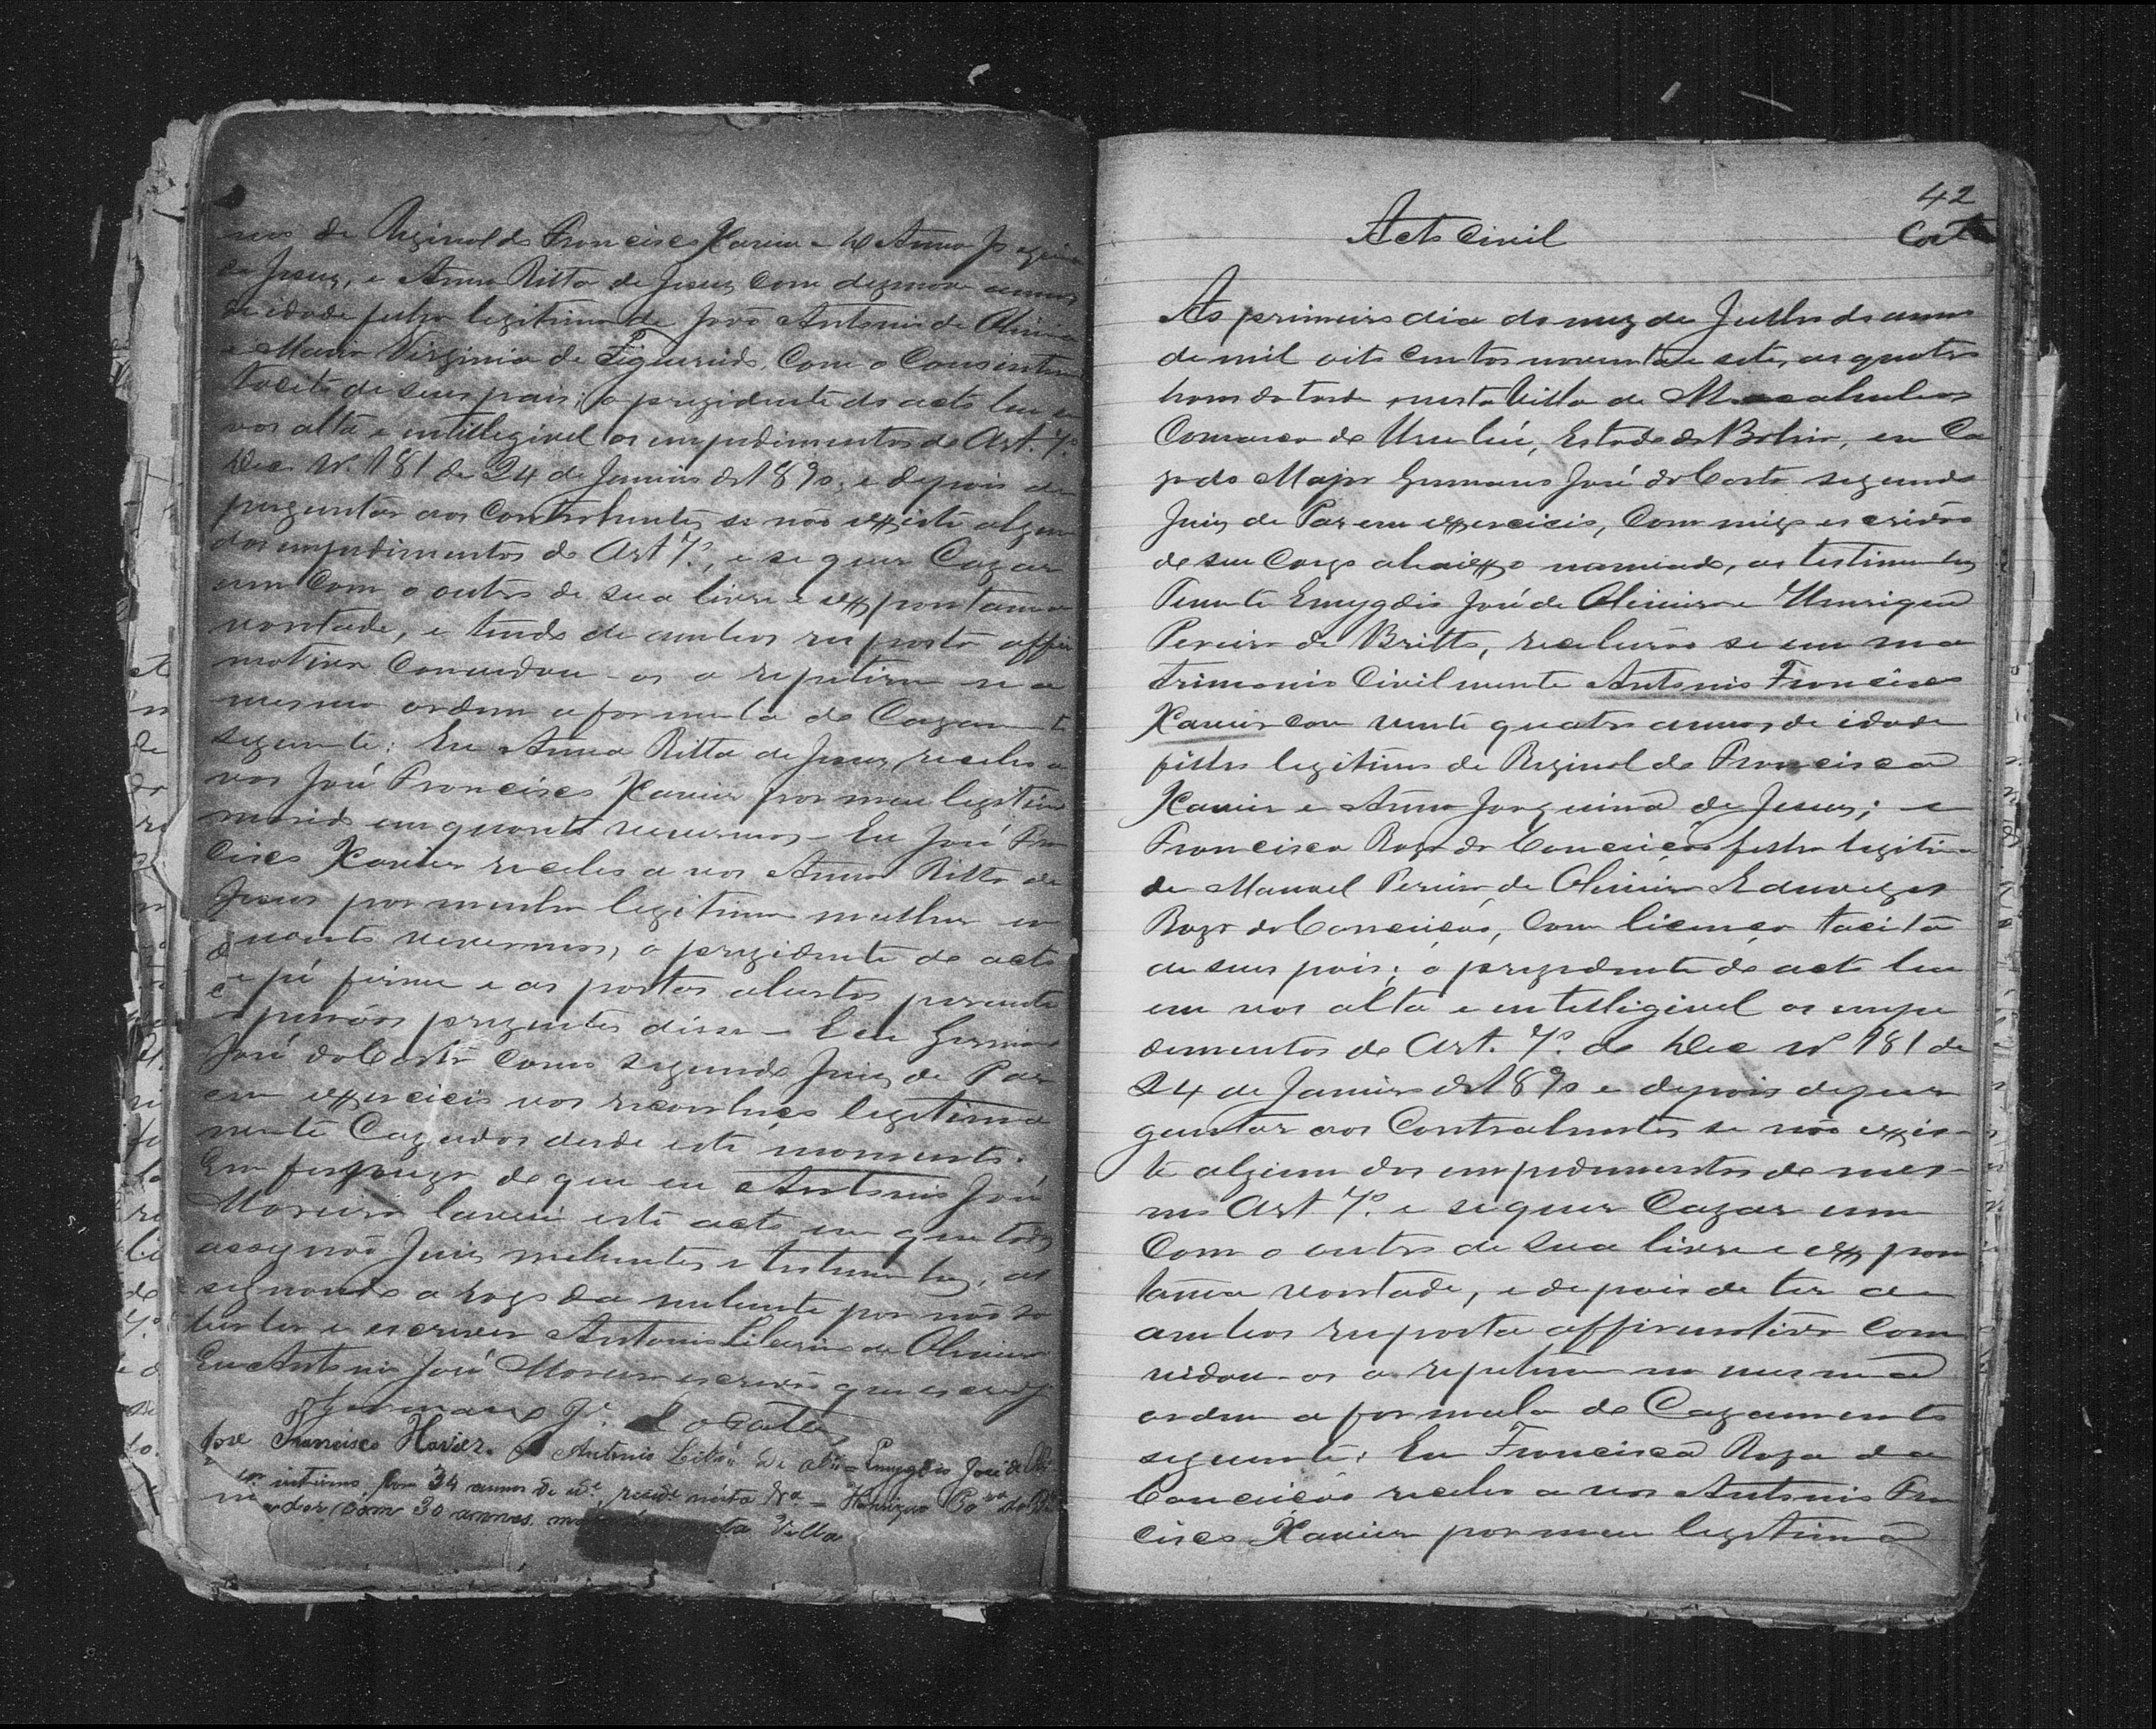 de Reginaldo Francisco Xavier e de Anna Joaquina
de Jesus, e Anna Ritta de Jesus com desnove annos
de idade filha legitima de João Antonio de Oliveira
e Maria Virginia de Figueiredo, Com o Consentim
tacito de seus pais; o prezidente do acto leu em
vos alta e intelligivel os impedimentos do Art. 7º
Dec Nº 181 de 24 de Janeiro de 1890, e depois de
perguntar aos Contrahentes se não exxiste algum
dos impedimentos do Art 7º, e se quer Cazar
um com o outro de sua livre e exxpontania
vontade, e tendo de ambos resposta affir
mativa Convidou-os a repitirem na
mesma ordem a formula do Cazamento
seguinte: Eu Anna Ritta de Jesus, recebo a
vos José Francisco Xavier por meu legitimo
marido emquanto vivermos - Eu José Fran
cisco Xavier recebo a vos Anna Ritta de
Jesus por minha legitima mulher em
quanto vivermos, o prezidente do acto
de pé firme e as portas abertas perante
as pessôas prezentes disse - Eeu Germano
José da Costa como segundo Juiz de Pas
em exxercicio vos reconheço legitima
mente Cazados desde este momento.
Em firmeza do que eu Antonio José
Moreira lavrei este acto em que todos
assignão Juis, nubentes e testemunhas, as
signando a rogo da nubente por não sa
ber ler e escrever Antonio Liberio de Oliveira
Eu Antonio José Moreira escrivão que escrevi
Germano Jé. da Costa
José Francisco Xavier. Antonio Libº de Olivª Emygdio José de
interino com 34 annos de idade reside nesta Vª - Henrique Perª de
com 30 annos. Villa
42
Acto Civil
Costa
Ao primeiro dia do mez de Julho do anno
de mil oito centos noventa e sete, as quatro
horas da tarde nesta Villa de Macahubas
Comarca de Urubú, Estado da Bahia, em Ca
za do Major Germano José da Costa segundo
Juiz de Pas em exxercicio, Commigo escrivão
de seu Cargo abaixxo nomeado, as testimunhas
Tenente Emygdio José de Oliveira e Henrique
Pereira de Britto, receberão se em ma
trimonio Civilmente Antonio Francisco
Xavier com vinte quatro annos de idade
filho legitimo de Reginaldo Francisco
Xavier e Anna Joaquina de Jesus; e
Francisca Roza da Conceição filha legitima
de Manoel Pereira de Oliveira Eduviges
Roza da Conceição, Com licença tacita
de seus pais; o prezidente do acto leu
em vos alta e intelligivel os impe
dimentos do Art. 7º. do Dec Nº 181 de
24 de Janeiro de 1890 e depois deper
guntar aos Contrahentes se não exxis
te algum dos impedimentos do mes-
mo Art 7º. e se quer Cazar um
Com o outro de sua livre e exxpon
tania vontade, e depois de ter de
ambos resposta affirmativa Con
vidou-os a repitirem na mesma
ordem a formula do Cazamento
seguinte: Eu Francisca Roza da
Conceição recebo a vos Antonio Fran
cisco Xavier por meu legitimo